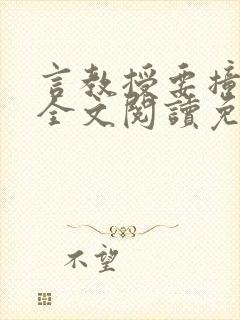 言教授要撞
全文閱讀免
不望